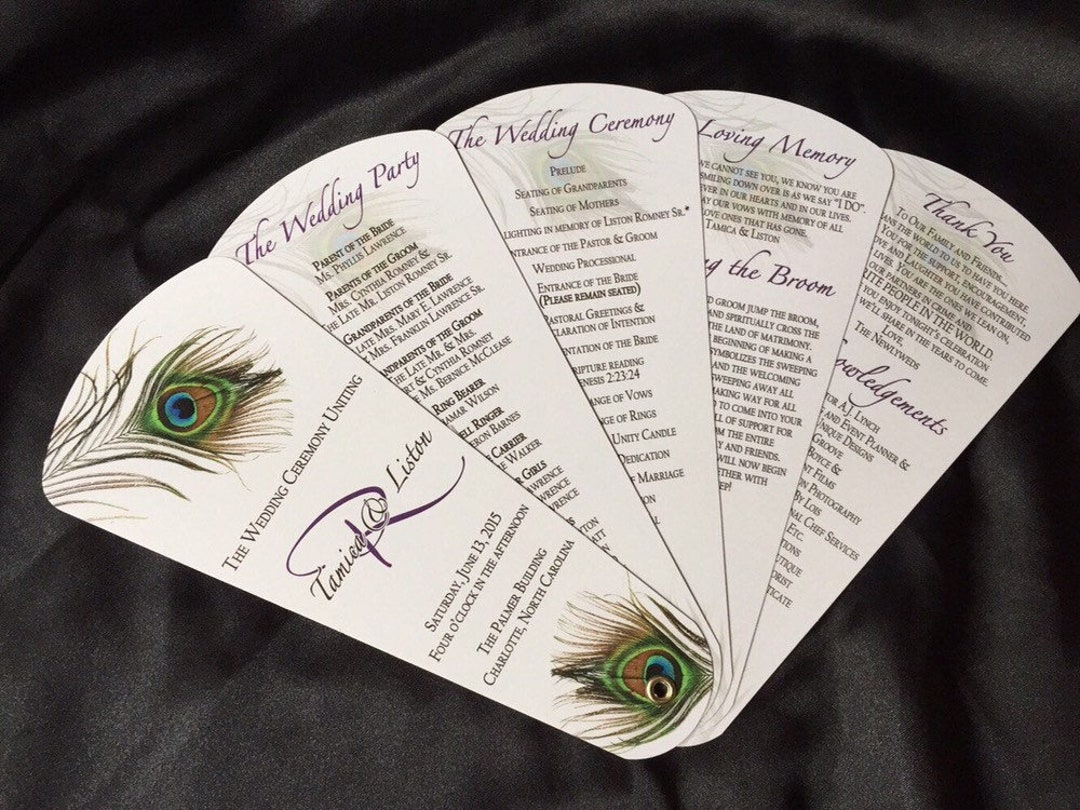 The Wedding Ceremony Uniting
Tamica & Liston
R
Saturday, June 13, 2015
Four o'clock in the afternoon
The Palmer Building
Charlotte, North Carolina
The Wedding Party
Parent of the Bride
Ms. Phyllis Lawrence
Parents of the Groom
Mrs. Cynthia Romney &
The Late Mr. Liston Romney Sr.
Grandparents of the Bride
Late Mrs. Mary E. Lawrence
Mrs. Franklin Lawrence Sr.
Grandparents of the Groom
The Late Mr. & Mrs.
& Cynthia Romney
Ms. Bernice McClease
Ring Bearer
Wilson
Ringer
Barnes
Carrier
Walker
Girls
The Wedding Ceremony
Prelude
Seating of Grandparents
Seating of Mothers
Lighting in memory of Liston Romney Sr.*
Entrance of the Pastor & Groom
Wedding Processional
Entrance of the Bride
(Please remain seated)
Pastoral Greetings &
Declaration of Intention
of the Bride
Scripture reading
Genesis 2:23:24
of Vows
of Rings
Unity Candle
Dedication
of Marriage
Loving Memory
we cannot see you, we know you are
smiling down over is as we say "I do".
ever in our hearts and in our lives.
say our vows with memory of all
love ones that has gone.
Tamica & Liston
the Broom
groom jump the broom,
and spiritually cross the
the land of matrimony.
beginning of making a
symbolizes the sweeping
and the welcoming
sweeping away all
making way for all
to come into your
of support for
the entire
and friends.
will now begin
together with
Thank You
To Our Family and Friends,
the world to us to have you here.
You for the support, encouragement,
and laughter you have contributed
lives. You are the ones we lean on,
our partners in crime and
people in the world.
you enjoy tonight's celebration
we'll share in the years to come.
Love,
The Newlyweds
Acknowledgements
A.J. Lynch
and Event Planner &
Unique Designs
Groove
Boyce &
Films
Photography
By Lois
Chef Services
Etc.